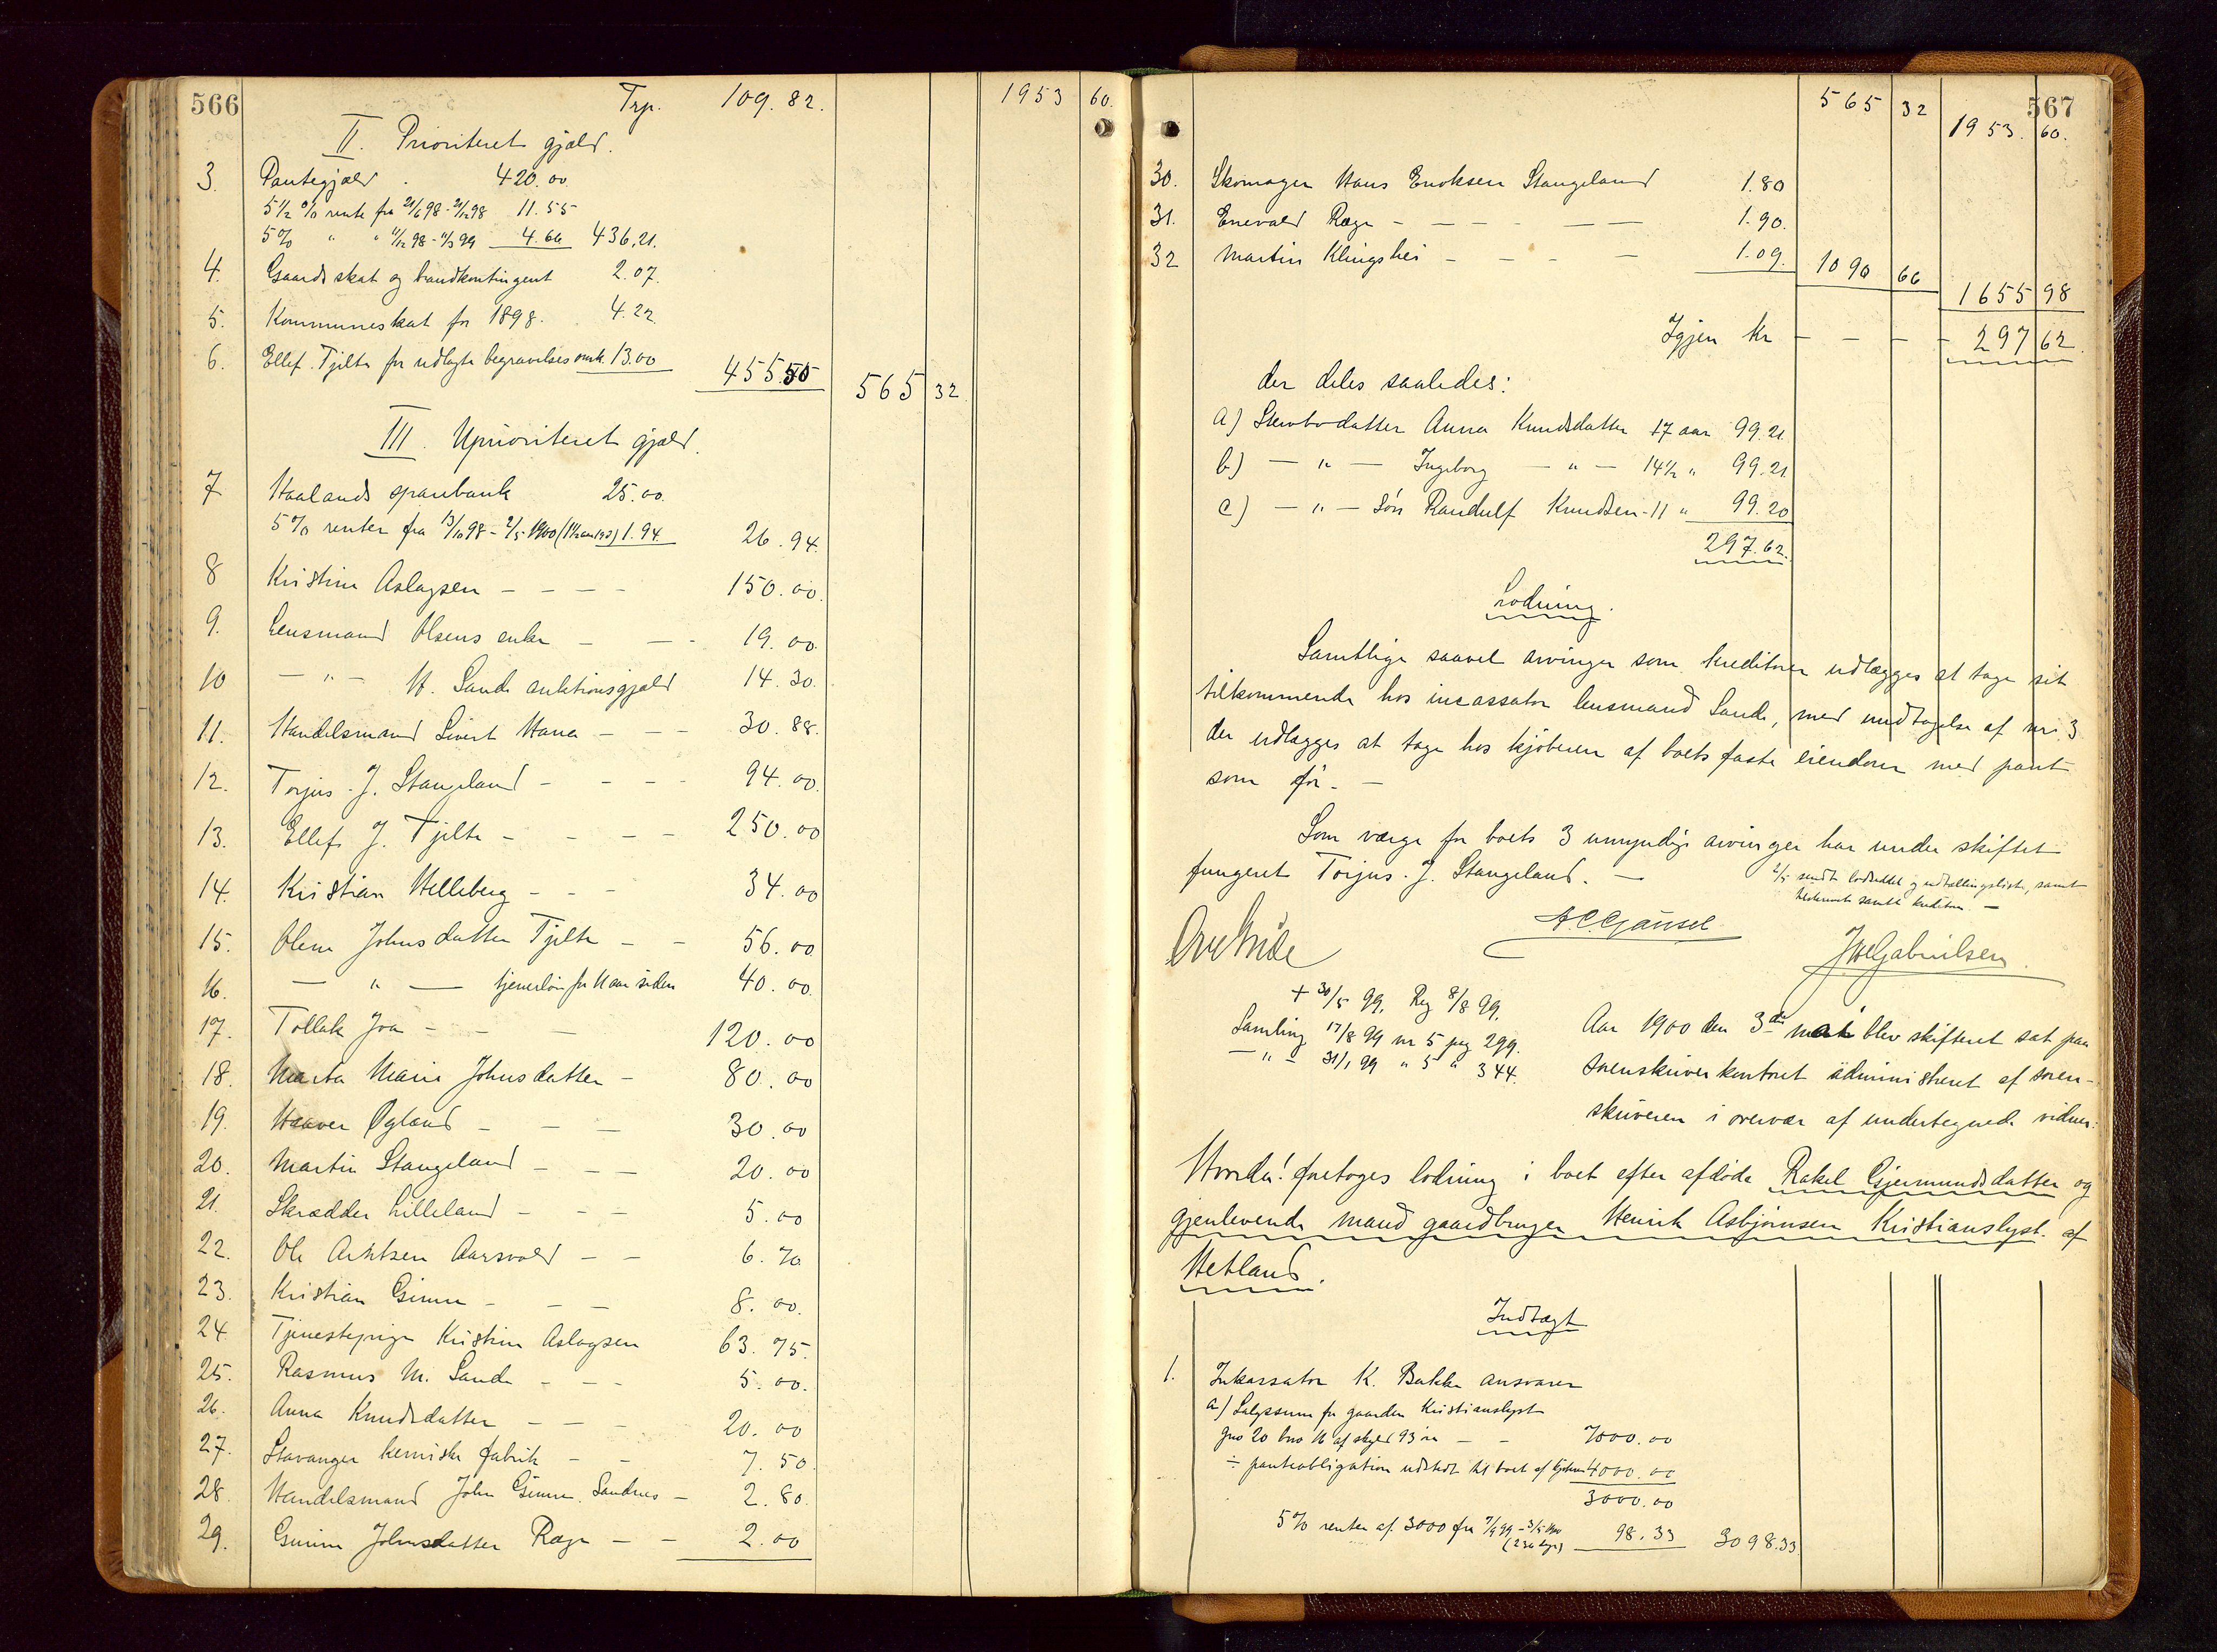 566
Trp. 109.82. 1953 60.
II. Prioriteret gjæld.
3. Pantegjæld . 420.00
5½ % rente fra 21/6 98 - 21/12 98 11.55
5% " " 21/12 98 - 11/3 99 4.66 436,21.
4. Gaards skat og brandkontingent 2.07.
5. Kommuneskat for 1898. 4.22.
6. Ellef. Tjelta for udlagte begravelsesomk. 13.00 455.50 565 32
III. Uprioriteret gjæld.
7 Haalands sparebank 25.00.
5% renter fra 13/10 98 - 2/5 1900 1.94 26.94.
8 Kristine Aslagsen - - - - 150.00.
9. Lensmand Olsens enke - - - 19.00.
10 — " — H. Sande auktionsgjæld 14.30.
11. Handelsmand Sivert Hana - - - 30.88.
12. Torjus. J. Stangeland - - - - 94.00.
13. Ellef J. Tjelta - - - - 250.00
14. Kristian Helleberg - - - 34.00
15. Olene Johnsdatter Tjelta - - 56.00
16. — " — tjenerløn for 11 aar siden 40.00.
17. Tollak Joa - - - 120.00
18. Marta Marie Johnsdatter - 80.00
19. Haaver Øgland - - - 30.00
20. Martin Stangeland - - - 20.00
21. Skrædder Lilleland - - - 5.00
22. Ole Aarsvold - - 6.70
23. Kristian Gimre - - - 8.00.
24. Tjenestepige Kristine Aslagsen 63.75.
25. Rasmus M. Sande - - - 5.00.
26. Anna Knudsdatter - - - 20.00
27. Stavanger kemiske fabrik - - 7.50.
28. Handelsmand John Gimre. Sandnes - 2.80.
29. Gurine Johnsdatter Ræge - - 2.00
567
565 32 1953. 60.
30. Skomager Hans Enoksen Stangeland 1.80
31. Enevald Ræge - - - - - 1.90.
32 Martin Klingshei - - - - 1.09. 1090 66 1655 98
Igjen kr - - - - 297 62.
der deles saaledes:
a) Stervbodatter Anna Knudsdatter 17 aar 99.21.
b) — " — Ingeborg — " — 14½ " 99.21
c) — " — søn Randulf Knudsen - 11 " 99.20
297.62.
Lodning.
Samtlige saavel arvinger som kreditorer udlægges at tage sit
tilkommende hos incassator lensmand Sande, med undtagelse af nr. 3
der udlægges at tage hos kjøberen af boets faste eiendom med pant
som før. —
Som værge for boets 3 umyndige arvinger har under skiftet
fungeret Torjus. J. Stangeland. —
2/5 sendt lodseddel og udtællingsliste, samt
samtl. kreditorer. —
A. C. Gjausel
J W Gabrielsen
+ 30/5 99. Reg 8/8 99.
Samling 17/8 99 nr 5 pag 299.
— " — 31/1 99 " 5 " 344.
Aar 1900 den 3de mai blev skifteret sat paa
sorenskriverkontoret administreret af soren-
skriveren i overvær af undertegnede vidner:
Hvorda! foretoges lodning i boet efter afdøde Rakel Gjermundsdatter og
gjenlevende mand gaardbruger Henrik Asbjørnsen Kristianslyst. af
Hetland.
Indtægt
1. Inkassator K. Bakke ansvarer
a) Salgssum for gaarden Kristianslyst
gno 20 bno 16 af skyld 93 øre - - 7000.00
÷ panteobligation udstedt til boet af kjøberen 4000.00
3000.00
5% renter af 3000 fra 7/9 99 - 3/5 1900
(236 dage) 98.33 3098.33.